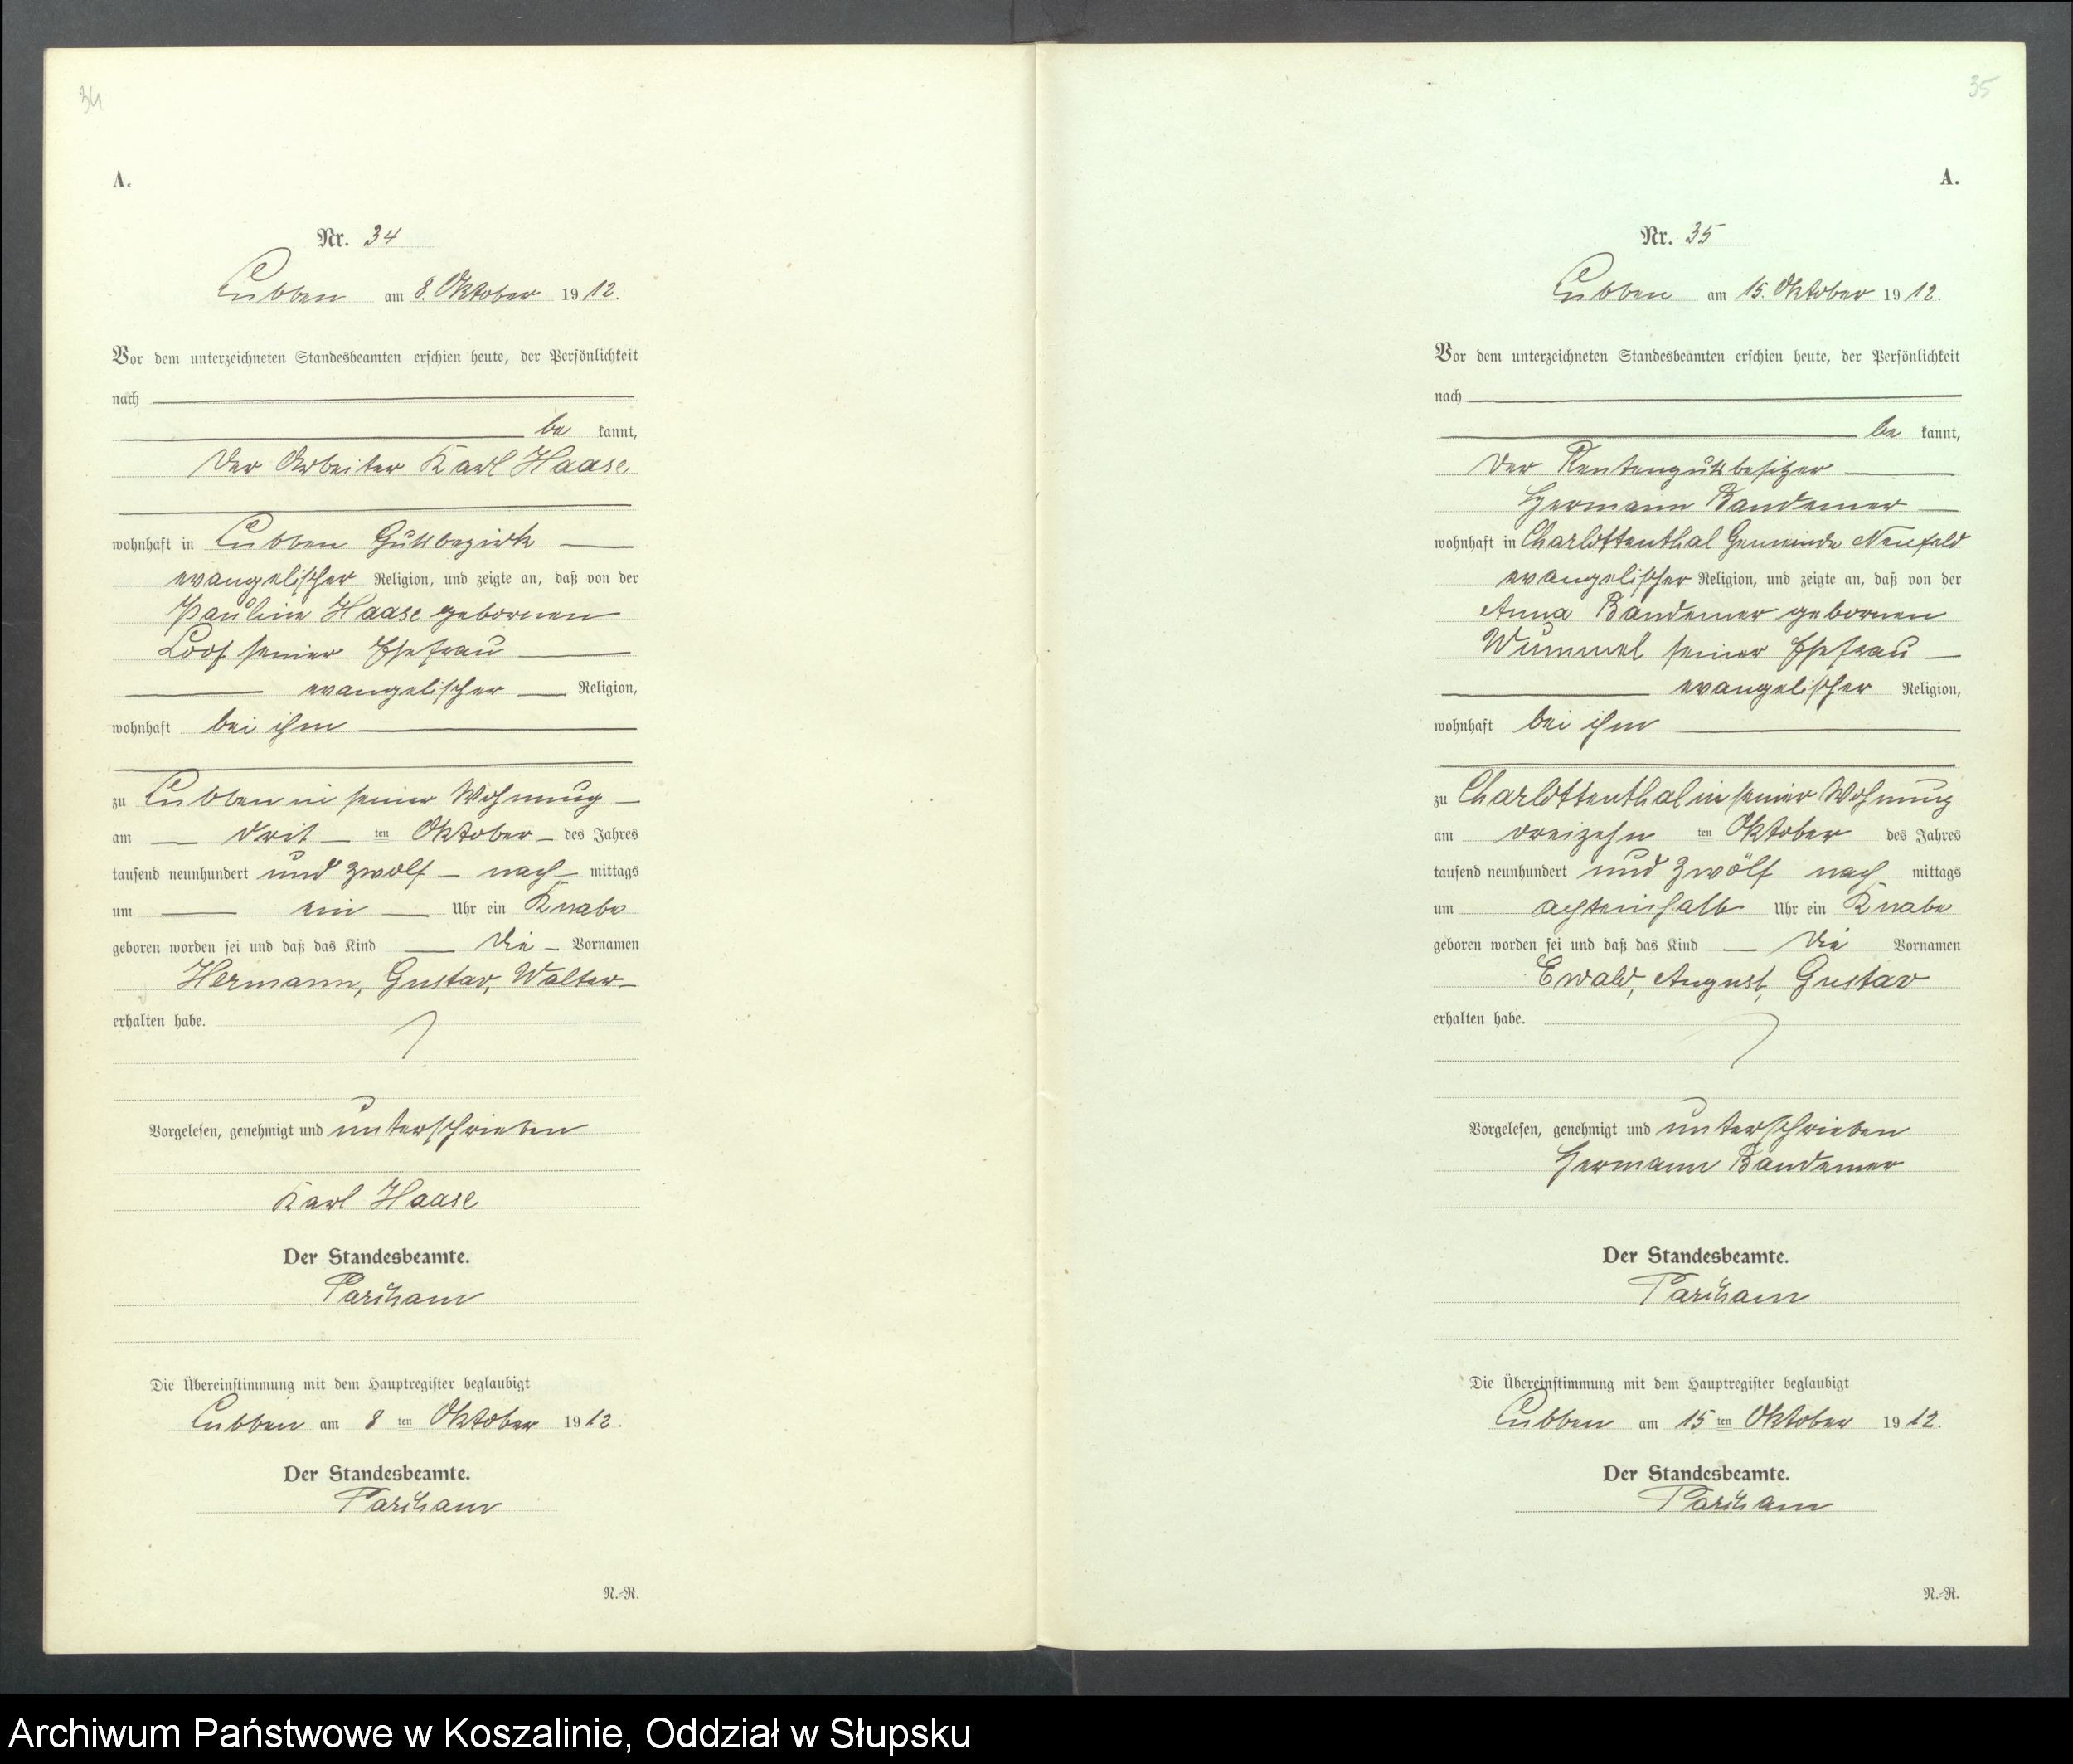 34
A.
Nr. 34
Lubben am 8. Oktober 1912.
Vor dem unterzeichneten Standesbeamten erschien heute, der Persönlichkeit
nach
be kannt,
der Arbeiter Karl Haase
wohnhaft in Lubben Gutsbezirk
evangelischer Religion, und zeigte an, daß von der
Pauline Haase gebornen
Loof seiner Ehefrau
evangelischer Religion,
wohnhaft bei ihm
zu Lubben in seiner Wohnung
am drit ten Oktober des Jahres
tausend neunhundert und zwölf nach mittags
um ein Uhr ein Knabe
geboren worden sei und daß das Kind die Vornamen
Hermann, Gustav, Walter
erhalten habe.
Vorgelesen, genehmigt und unterschrieben
Karl Haase
Der Standesbeamte.
Die Übereinstimmung mit dem Hauptregister beglaubigt
Lubben am 8 ten Oktober 1912.
Der Standesbeamte.
N.-R.
35
A.
Nr. 35
Lubben am 15. Oktober 1912.
Vor dem unterzeichneten Standesbeamten erschien heute, der Persönlichkeit
nach
be kannt,
der Rentengutsbesitzer
Hermann Bandemer
wohnhaft in Charlottenthal Gemeinde Neufeld
evangelischer Religion, und zeigte an, daß von der
Anna Bandemer gebornen
Wummel seiner Ehefrau
evangelischer Religion,
wohnhaft bei ihm
zu Charlottenthal in seiner Wohnung
am dreizehn ten Oktober des Jahres
tausend neunhundert und zwölf nach mittags
um achteinhalb Uhr ein Knabe
geboren worden sei und daß das Kind die Vornamen
Ewald, August, Gustav
erhalten habe.
Vorgelesen, genehmigt und unterschrieben
Hermann Bandemer
Der Standesbeamte.
Die Übereinstimmung mit dem Hauptregister beglaubigt
Lubben am 15 ten Oktober 1912.
Der Standesbeamte.
N.-R.
Archiwum Państwowe w Koszalinie, Oddział w Słupsku